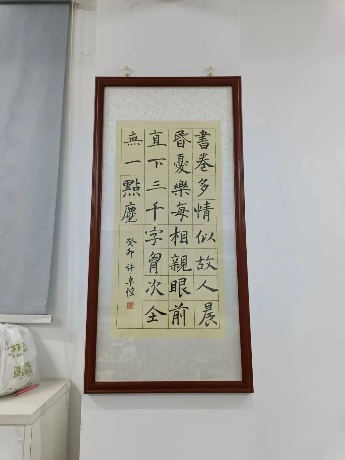 書卷多情似故人晨
昏憂樂每相親眼前
直下三千字胷次全
無一點塵
癸卯 许